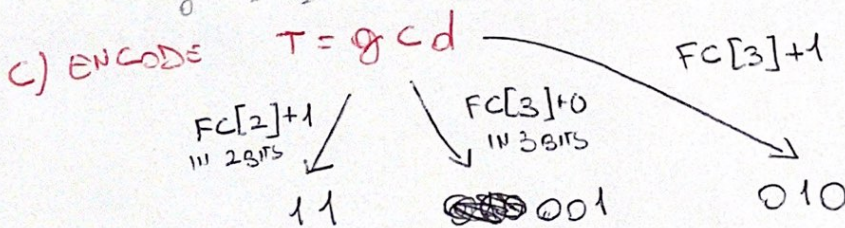 C) ENCODE T = g c d
FC[3]+1
FC[2]+1
IN 2BITS
FC[3]+0
IN 3BITS
11
001
010